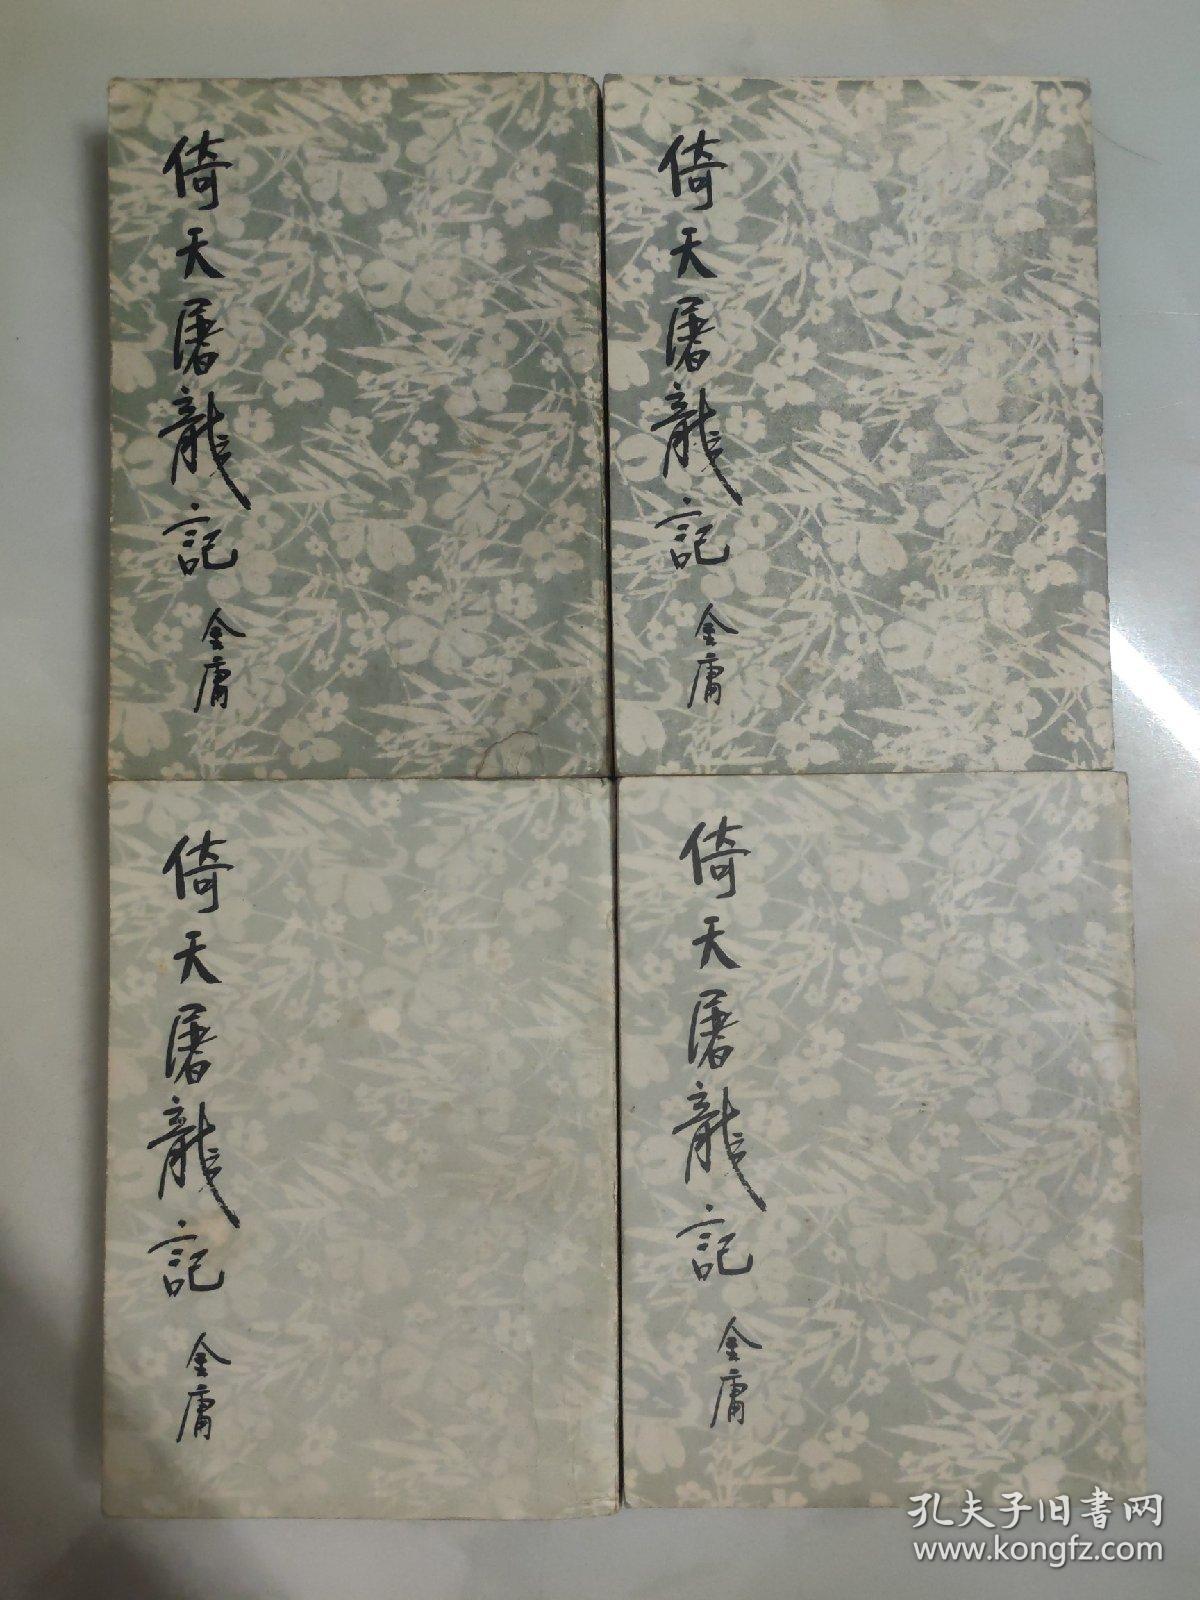 倚天屠龍記
金庸
倚天屠龍記
金庸
倚天屠龍記
金庸
倚天屠龍記
金庸
孔夫子旧书网
www.kongfz.com